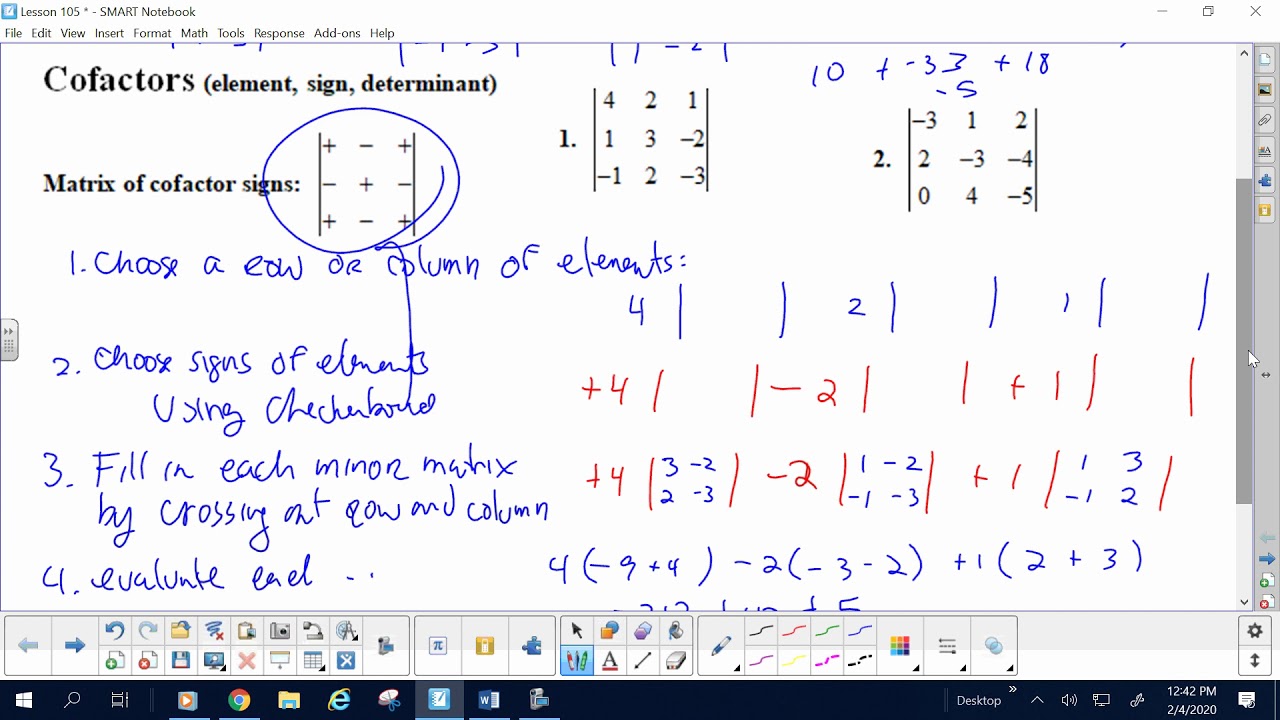 Lesson 105 * - SMART Notebook
File Edit View Insert Format Math Tools Response Add-ons Help
10 + -33 + 18
-5
Cofactors (element, sign, determinant)
Matrix of cofactor signs:
+ − +
− + −
+ − +
1.
4 2 1
1 3 −2
−1 2 −3
2.
−3 1 2
2 −3 −4
0 4 −5
1. Choose a row or column of elements:
4 | | 2 | | 1 | |
2. Choose signs of elements
Using Checkerboard
+4 | | − 2 | | + 1 | |
3. Fill in each minor matrix
by crossing out row and column
+4 | 3 −2 | −2 | 1 −2 | + 1 | 1 3 |
| 2 −3 | | −1 −3 | | −1 2 |
4. evaluate each ...
4(−9+4) −2(−3−2) +1(2+3)
Desktop
12:42 PM
2/4/2020